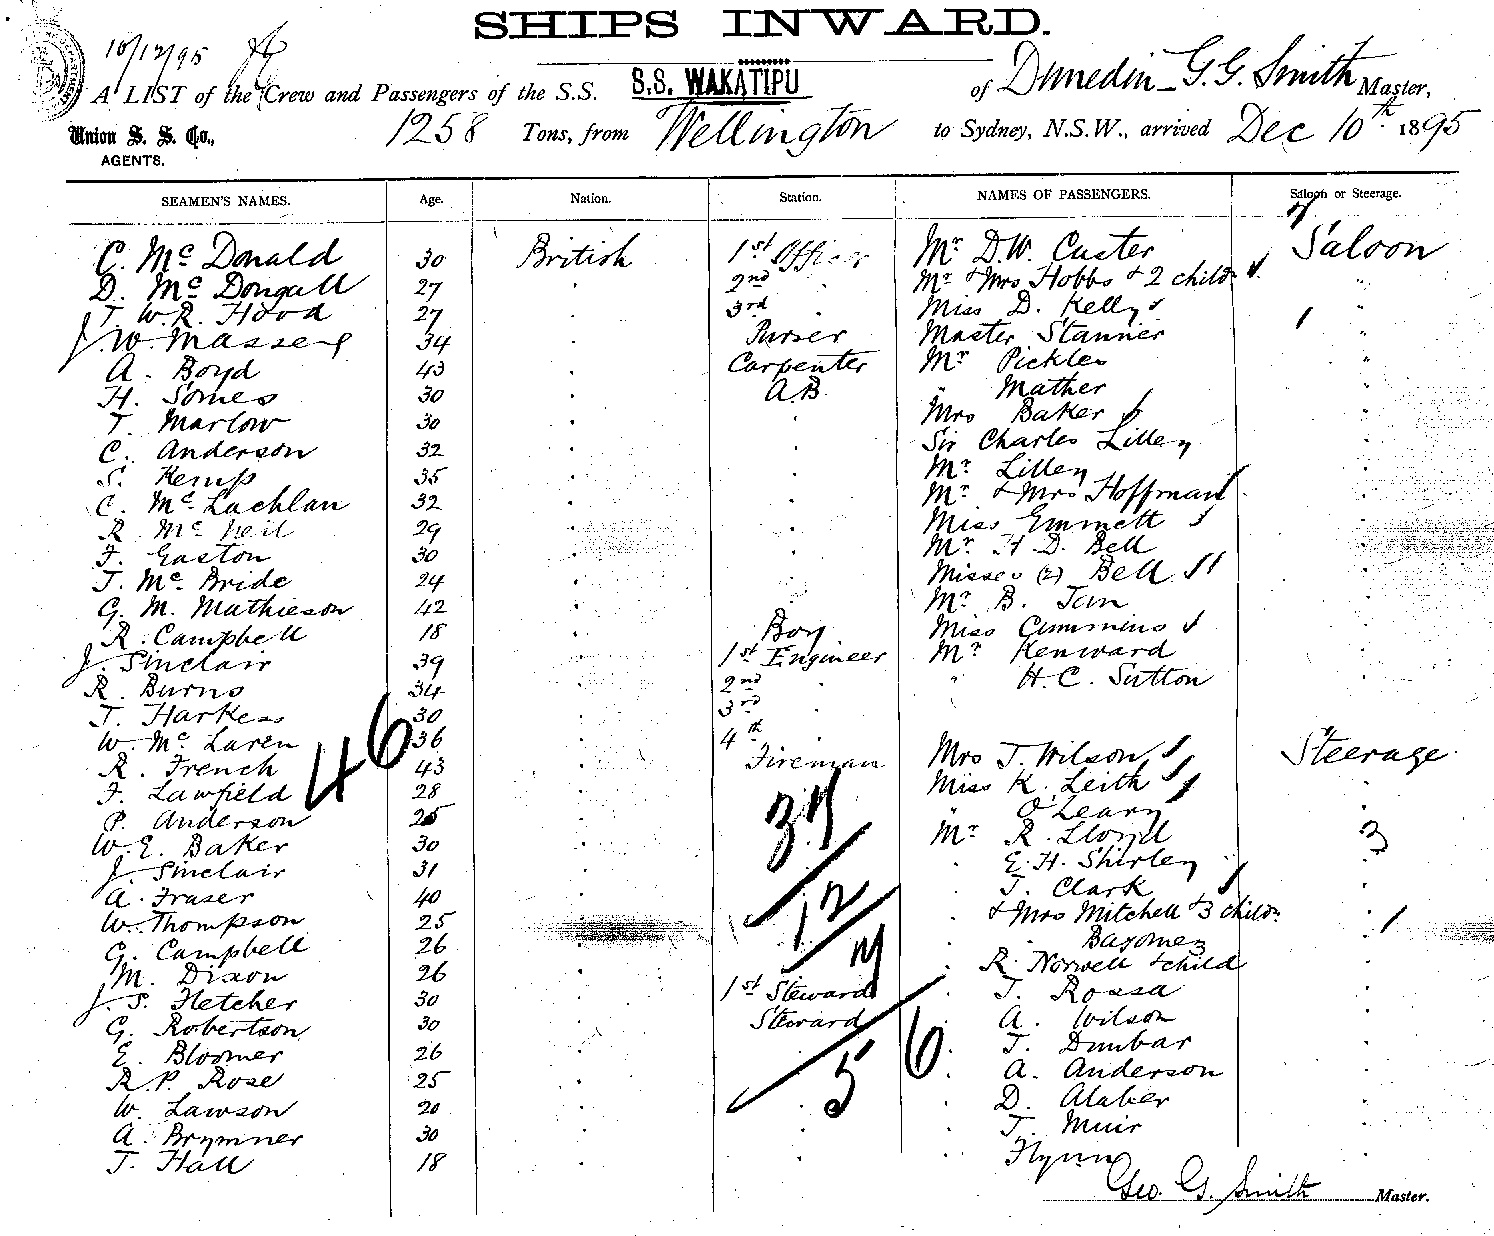 SHIPS INWARD.
10/12/95
A LIST of the Crew and Passengers of the S.S. S.S. WAKATIPU of Dunedin G. G. Smith Master,
Union S. S. Co., 1258 Tons, from Wellington to Sydney, N.S.W., arrived Dec 10th 1895
AGENTS.
SEAMEN'S NAMES. Age. Nation. Station. NAMES OF PASSENGERS. Saloon or Steerage.
C. Mc Donald 30 British 1st Officer Mr D.W. Custer Saloon
D. Mc Dougall 27 2nd Mr & Mrs Hobbs & 2 childn
T. W.R. Hood 27 3rd Miss D. Kelly
J. W. Massey 34 Purser Master Stanner
A. Boyd 43 Carpenter Mr Pickles
H. Somes 30 A.B. " Mather
T. Marlow 30 Mrs Baker
C. Anderson 32 Sir Charles Lilley
S. Kemp 35 Mr Lilley
C. Mc Lachlan 32 Mr & Mrs Hoffman
R. Mc Neil 29 Miss Emmett
F. Easton 30 Mr H. D. Bell
J. Mc Bride 24 Misses (2) Bell
G. M. Mathieson 42 Mr B. Tam
R. Campbell 18 Boy Miss Cummins
J. Sinclair 39 1st Engineer Mr Kenward
R. Burns 34 2nd " H. C. Sutton
T. Harkess 30 3rd
W. Mc Laren 36 4th
R. French 43 Fireman Mrs J. Wilson Steerage
F. Lawfield 28 Miss K. Leith
P. Anderson 25 " O'Leary
W. E. Baker 30 Mr R. Lloyd 3
J. Sinclair 31 E. H. Shirley
A. Fraser 40 T. Clark
W. Thompson 25 & Mrs Mitchell & 3 childn
G. Campbell 26
M. Dixon 26 R. Norwell & child
J. S. Fletcher 30 1st Steward T. Rossa
G. Robertson 30 Steward A. Wilson
E. Bloomer 26 T. Dunbar
R. P. Rose 25 A. Anderson
W. Lawson 20 D. Alaber
A. Brymner 30 T. Muir
T. Hall 18 Flynn
46
37
12
7
56
Geo. G. Smith Master.